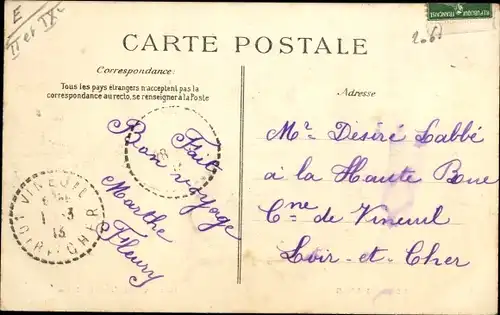 E
II et IX
RÉPUBLIQUE FRANÇAISE
CARTE POSTALE
Correspondance:
Tous les pays étrangers n'acceptent pas la
correspondance au recto, se renseigner à la Poste
Fait
Bon voyage
Marthe
Fleury
VINEUIL
1 - 3
13
LOIR-ET-CHER
Adresse
Mr Désiré Labbé
à la Haute Bone
Cne de Vineuil
Loir-et-Cher